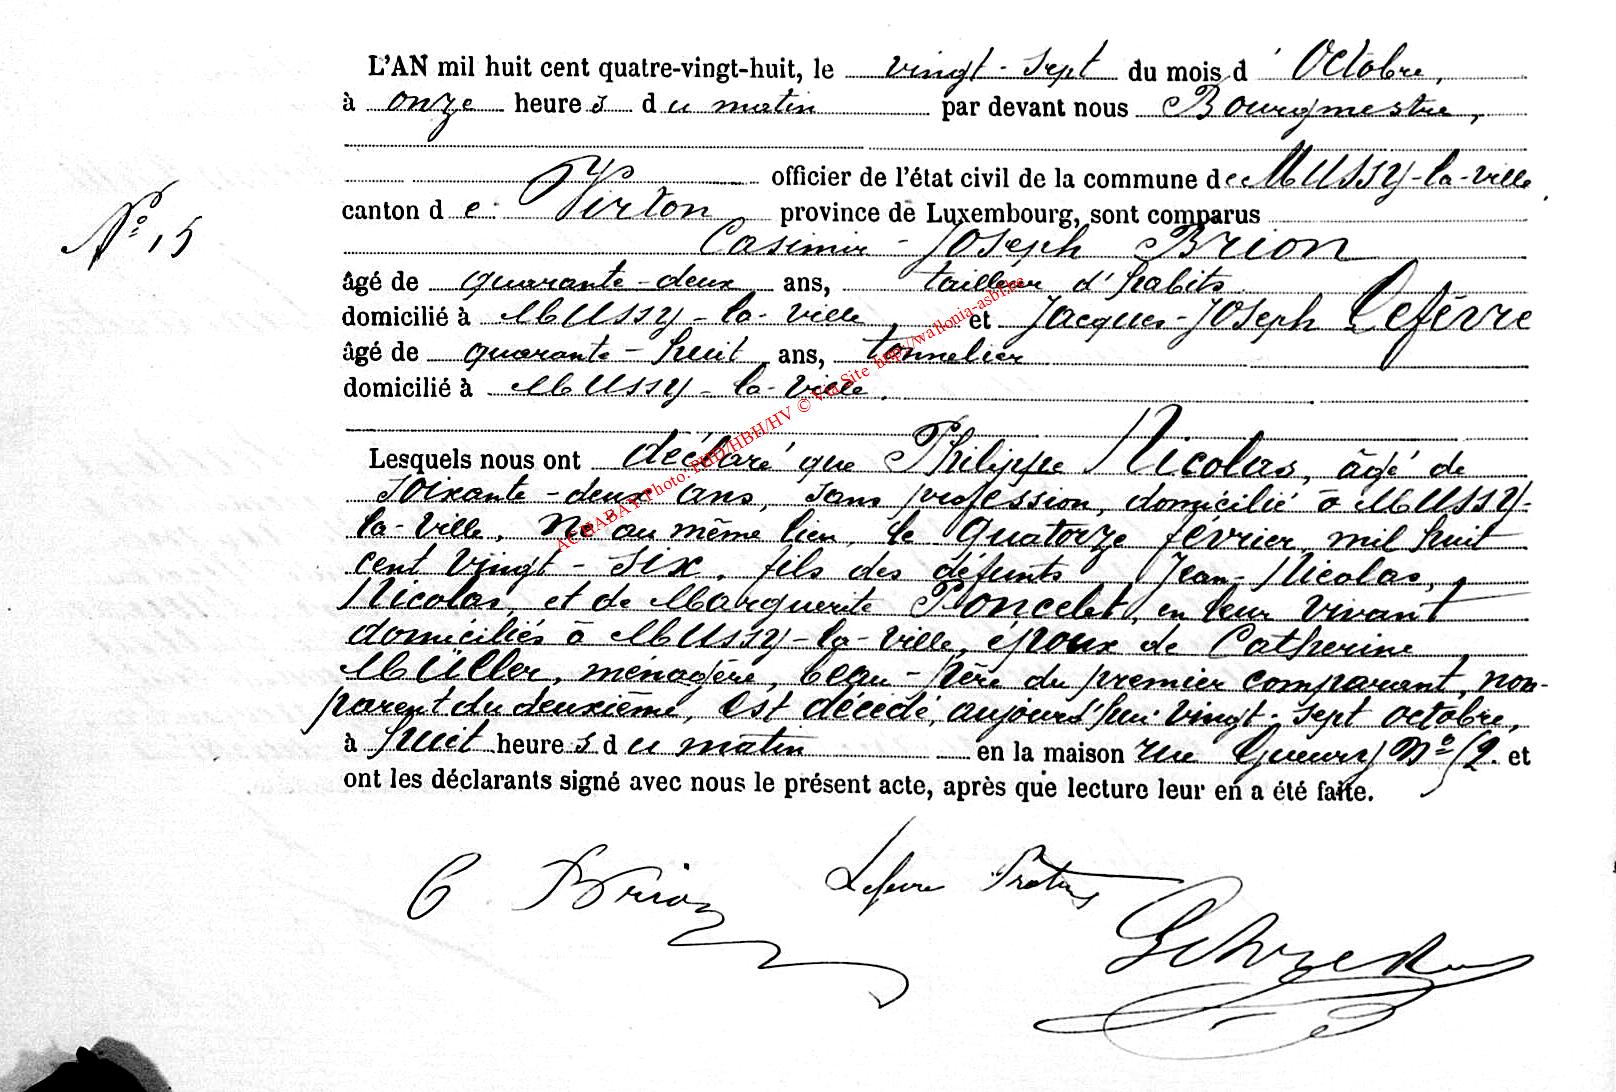 L'AN mil huit cent quatre-vingt-huit, le vingt-sept du mois d'Octobre,
à onze heures du matin par devant nous Bourgmestre,
officier de l'état civil de la commune de Mussy-la-ville,
canton de Virton province de Luxembourg, sont comparus
N° 15
Casimir-Joseph Brion
âgé de quarante-deux ans, tailleur d'habits
domicilié à Mussy-la-ville, et Jacques-Joseph Lefèvre
âgé de quarante-huit ans, tonnelier
domicilié à Mussy-la-ville.
Lesquels nous ont déclaré que Philippe Nicolas, âgé de
soixante-deux ans, sans profession, domicilié à Mussy-
la-ville, né au même lieu, le quatorze février mil huit
cent vingt-six, fils des défunts Jean-Nicolas,
Nicolas, et de Marguerite Poncelet, en leur vivant
domiciliés à Mussy-la-ville, époux de Catherine
Müller, ménagère, beau-père du premier comparant, non-
parent du deuxième, est décédé, aujourd'hui vingt-sept octobre,
à huit heures du matin en la maison rue N° 52. et
ont les déclarants signé avec nous le présent acte, après que lecture leur en a été faite.
C Brion Lefevre
ACHABAY Photo: PHD/HBH/HV © Via Site http://wallonia-asbl.be